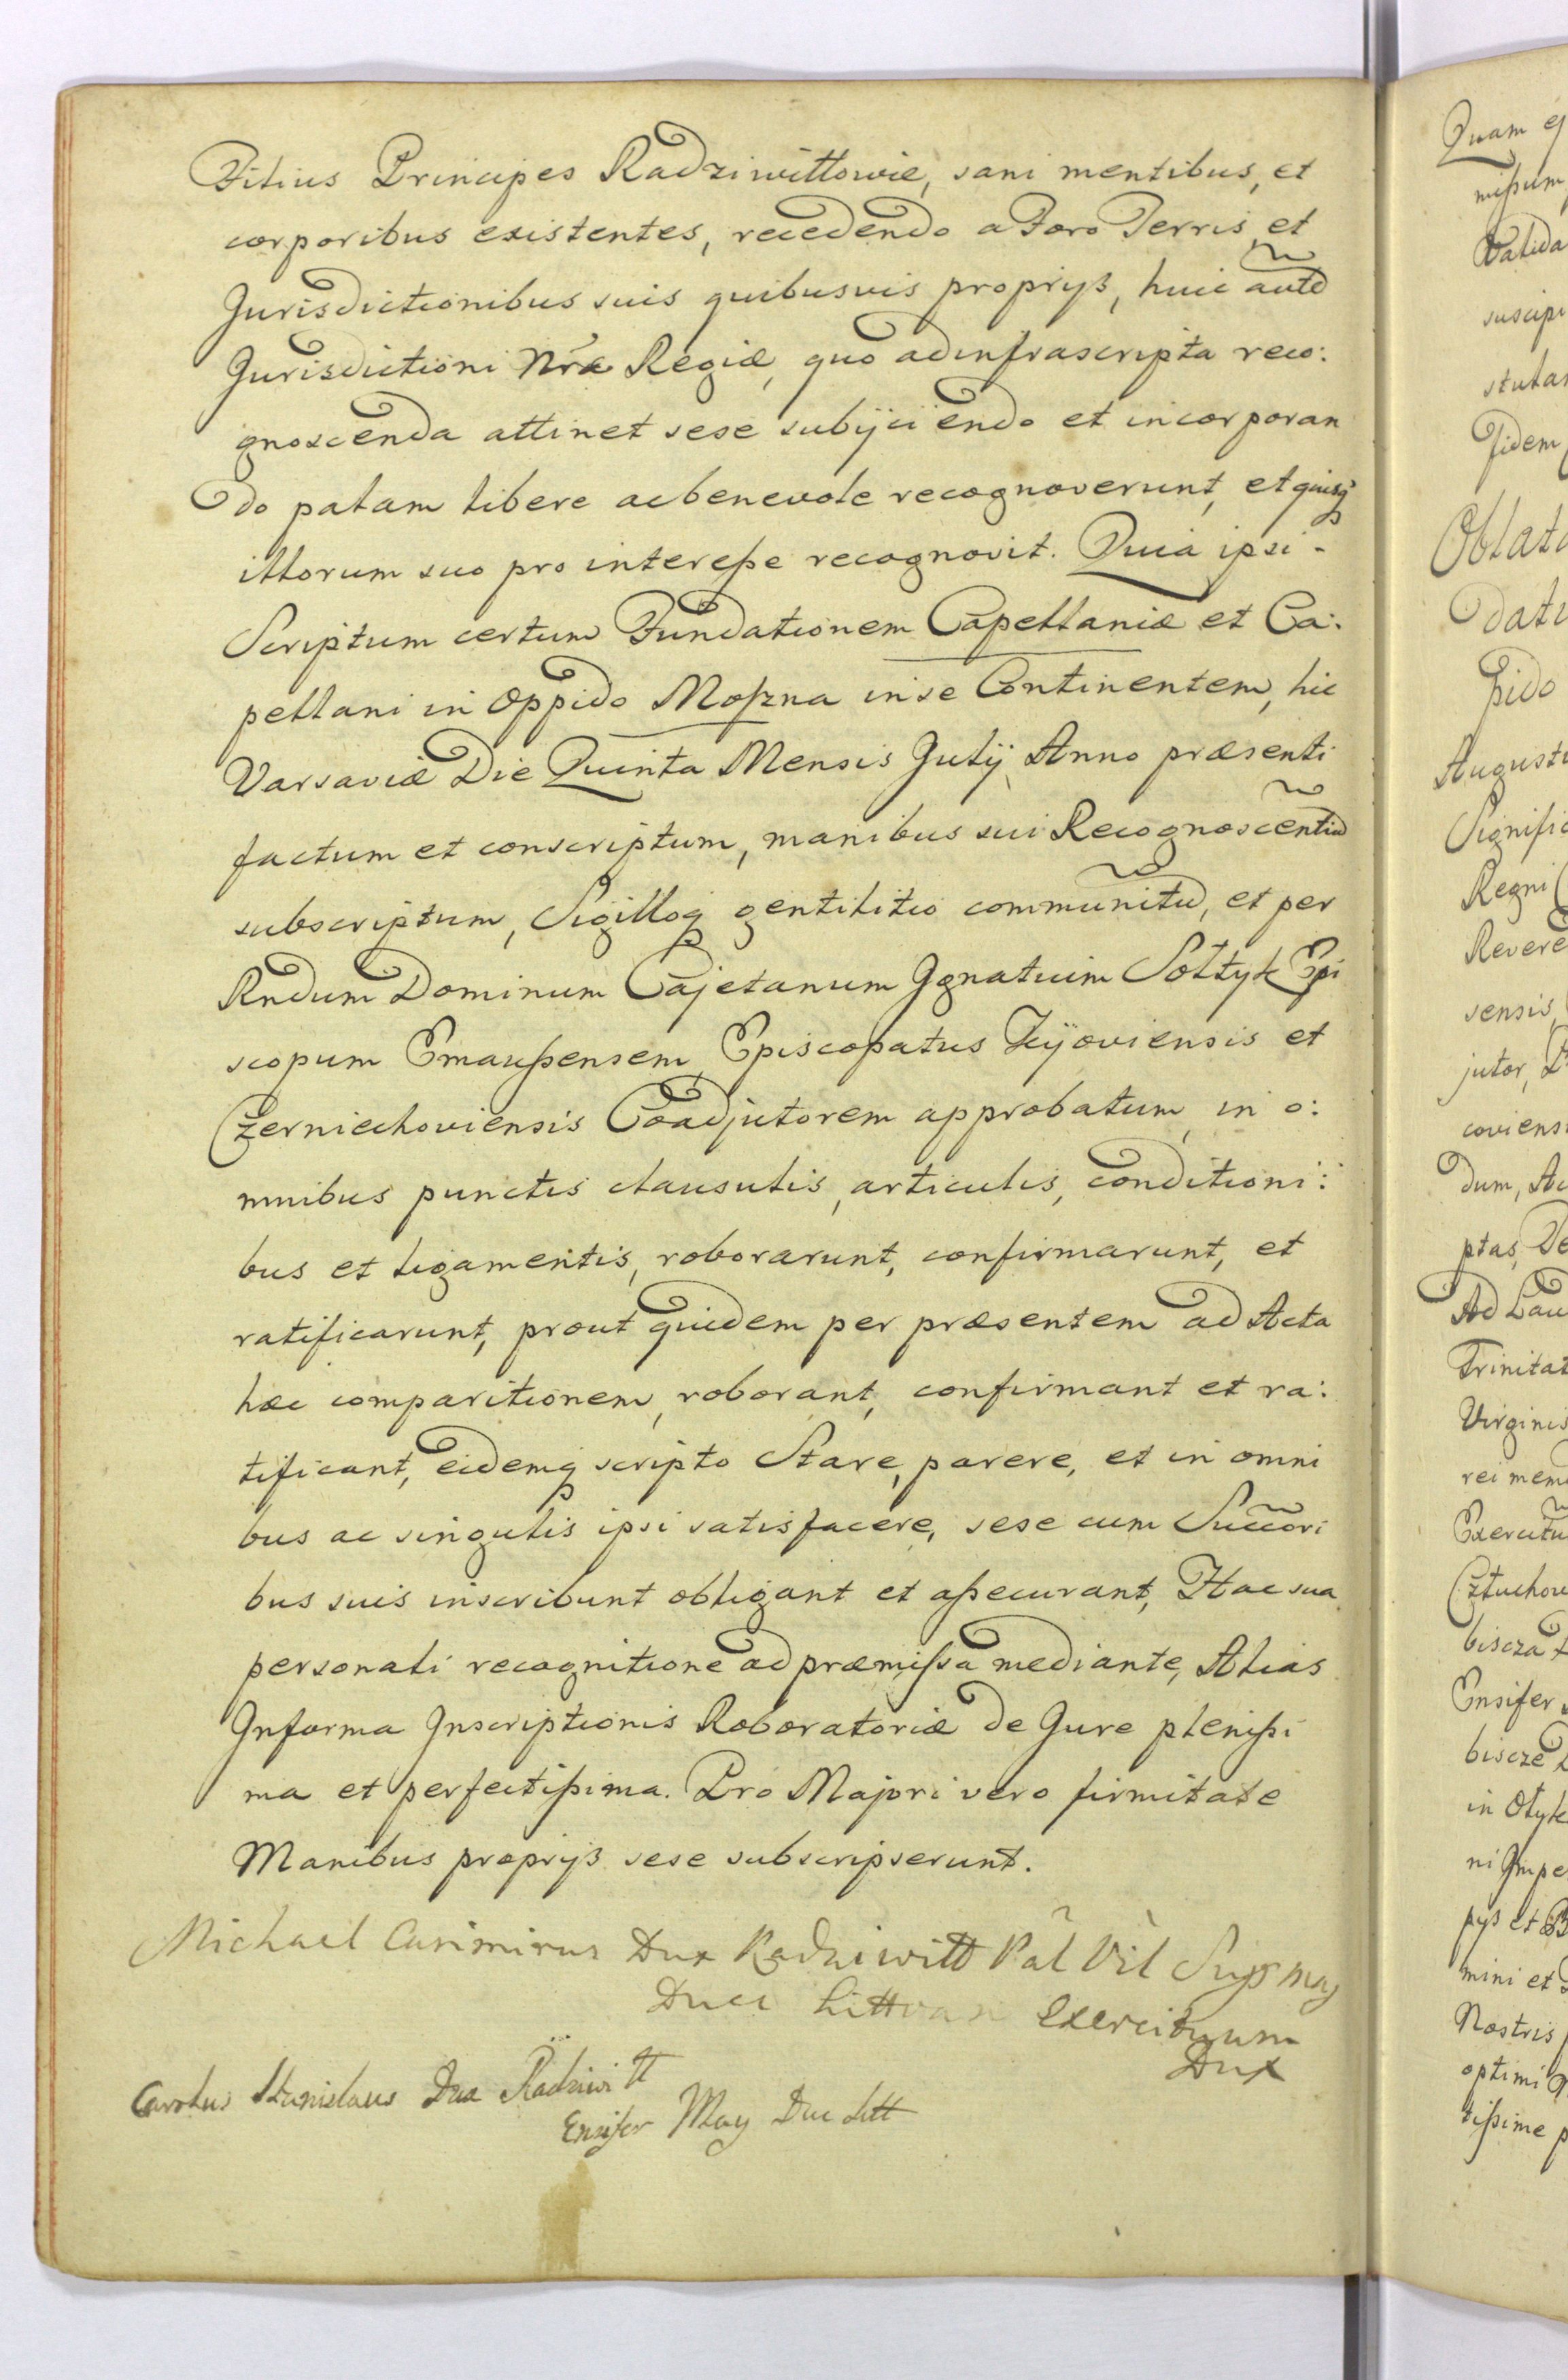 Filius Principes Radziwiłłowie, sani mentibus, et
corporibus existentes, recedendo a Foro Terris, et
Jurisdictionibus suis quibusvis proprijs, huic aut̃e
Jurisdictioni Nr̃æ Regiæ, quo ad infrascripta reco:
gnoscenda attinet sese subijciendo et incorporan
do palam libere ac benevole recognoverunt, et quisq
illorum suo pro interesse recognovit. Quia ipsi -
Scriptum certum Fundationem Capellaniæ et Ca:
pellani in Oppido Moszna in se Continentem, hic
Varsaviæ Die Quinta Mensis Julij Anno præsenti
factum et conscriptum, manibus sui Recognoscentiũ
subscriptum, Sigilloq gentilitio communitũ, et per
Rndum Dominum Cajetanum Ignatium Sołtyk Epi
scopum Emaussensem, Episcopatus Kijoviensis et
Czerniechoviensis Coadjutorem approbatum, in o:
mnibus punctis clausulis, articulis, conditioni:
bus et ligamentis, roborarunt, confirmarunt, et
ratificarunt, prout quidem per præsentem ad Acta
hæc comparitionem, roborant, confirmant et ra:
tificant, eidemq scripto Stare, parere, et in omni
bus ac singulis ipsi satisfacere, sese cum Succõri
bus suis inscribunt obligant et assecurant, Hac sua
personali recognitione ad præmissa mediante, Alias
In forma Inscriptionis Roboratoriæ de Jure plenissi
ma et perfectissima. Pro Majori vero firmitate
Manibus proprijs sese subscripserunt.
Michael Casimirus Dux Radziwiłł Pal Vil Supr mag
Duci Littvan Exercituum
Dux
Carolus Stanislaus Dux Radziwiłł
Ensifer Mag Duc Litt
Quam
missum
Valida
suscipi
Fidem
Oblat
Datu
pido
Augusti
Signific
Regni
Revere
sensis
jutor,
coviens
dum,
ptas, De
Ad Lau
Trinitat
Virginis
rei mem
Exercitu
Człuchov
Ensifer
in Ołyk
ni Impe
pijs et
mini et
Nostris
optimi
tissime p